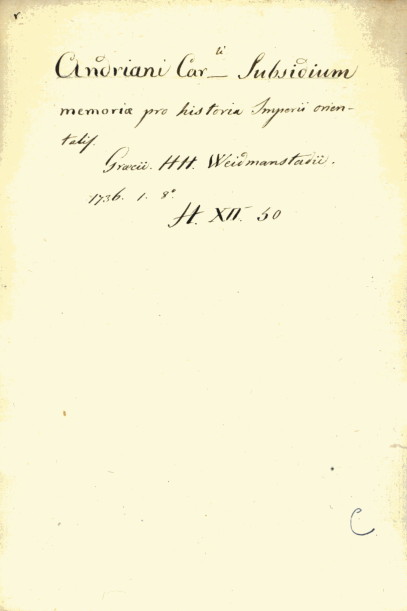 Andriani Car_li Subsidium
memoriæ pro historia Imperii orien-
talis.
Græcii. HH. Weidmanstadii.
1736. 1. 8°
H. XII. 50
C